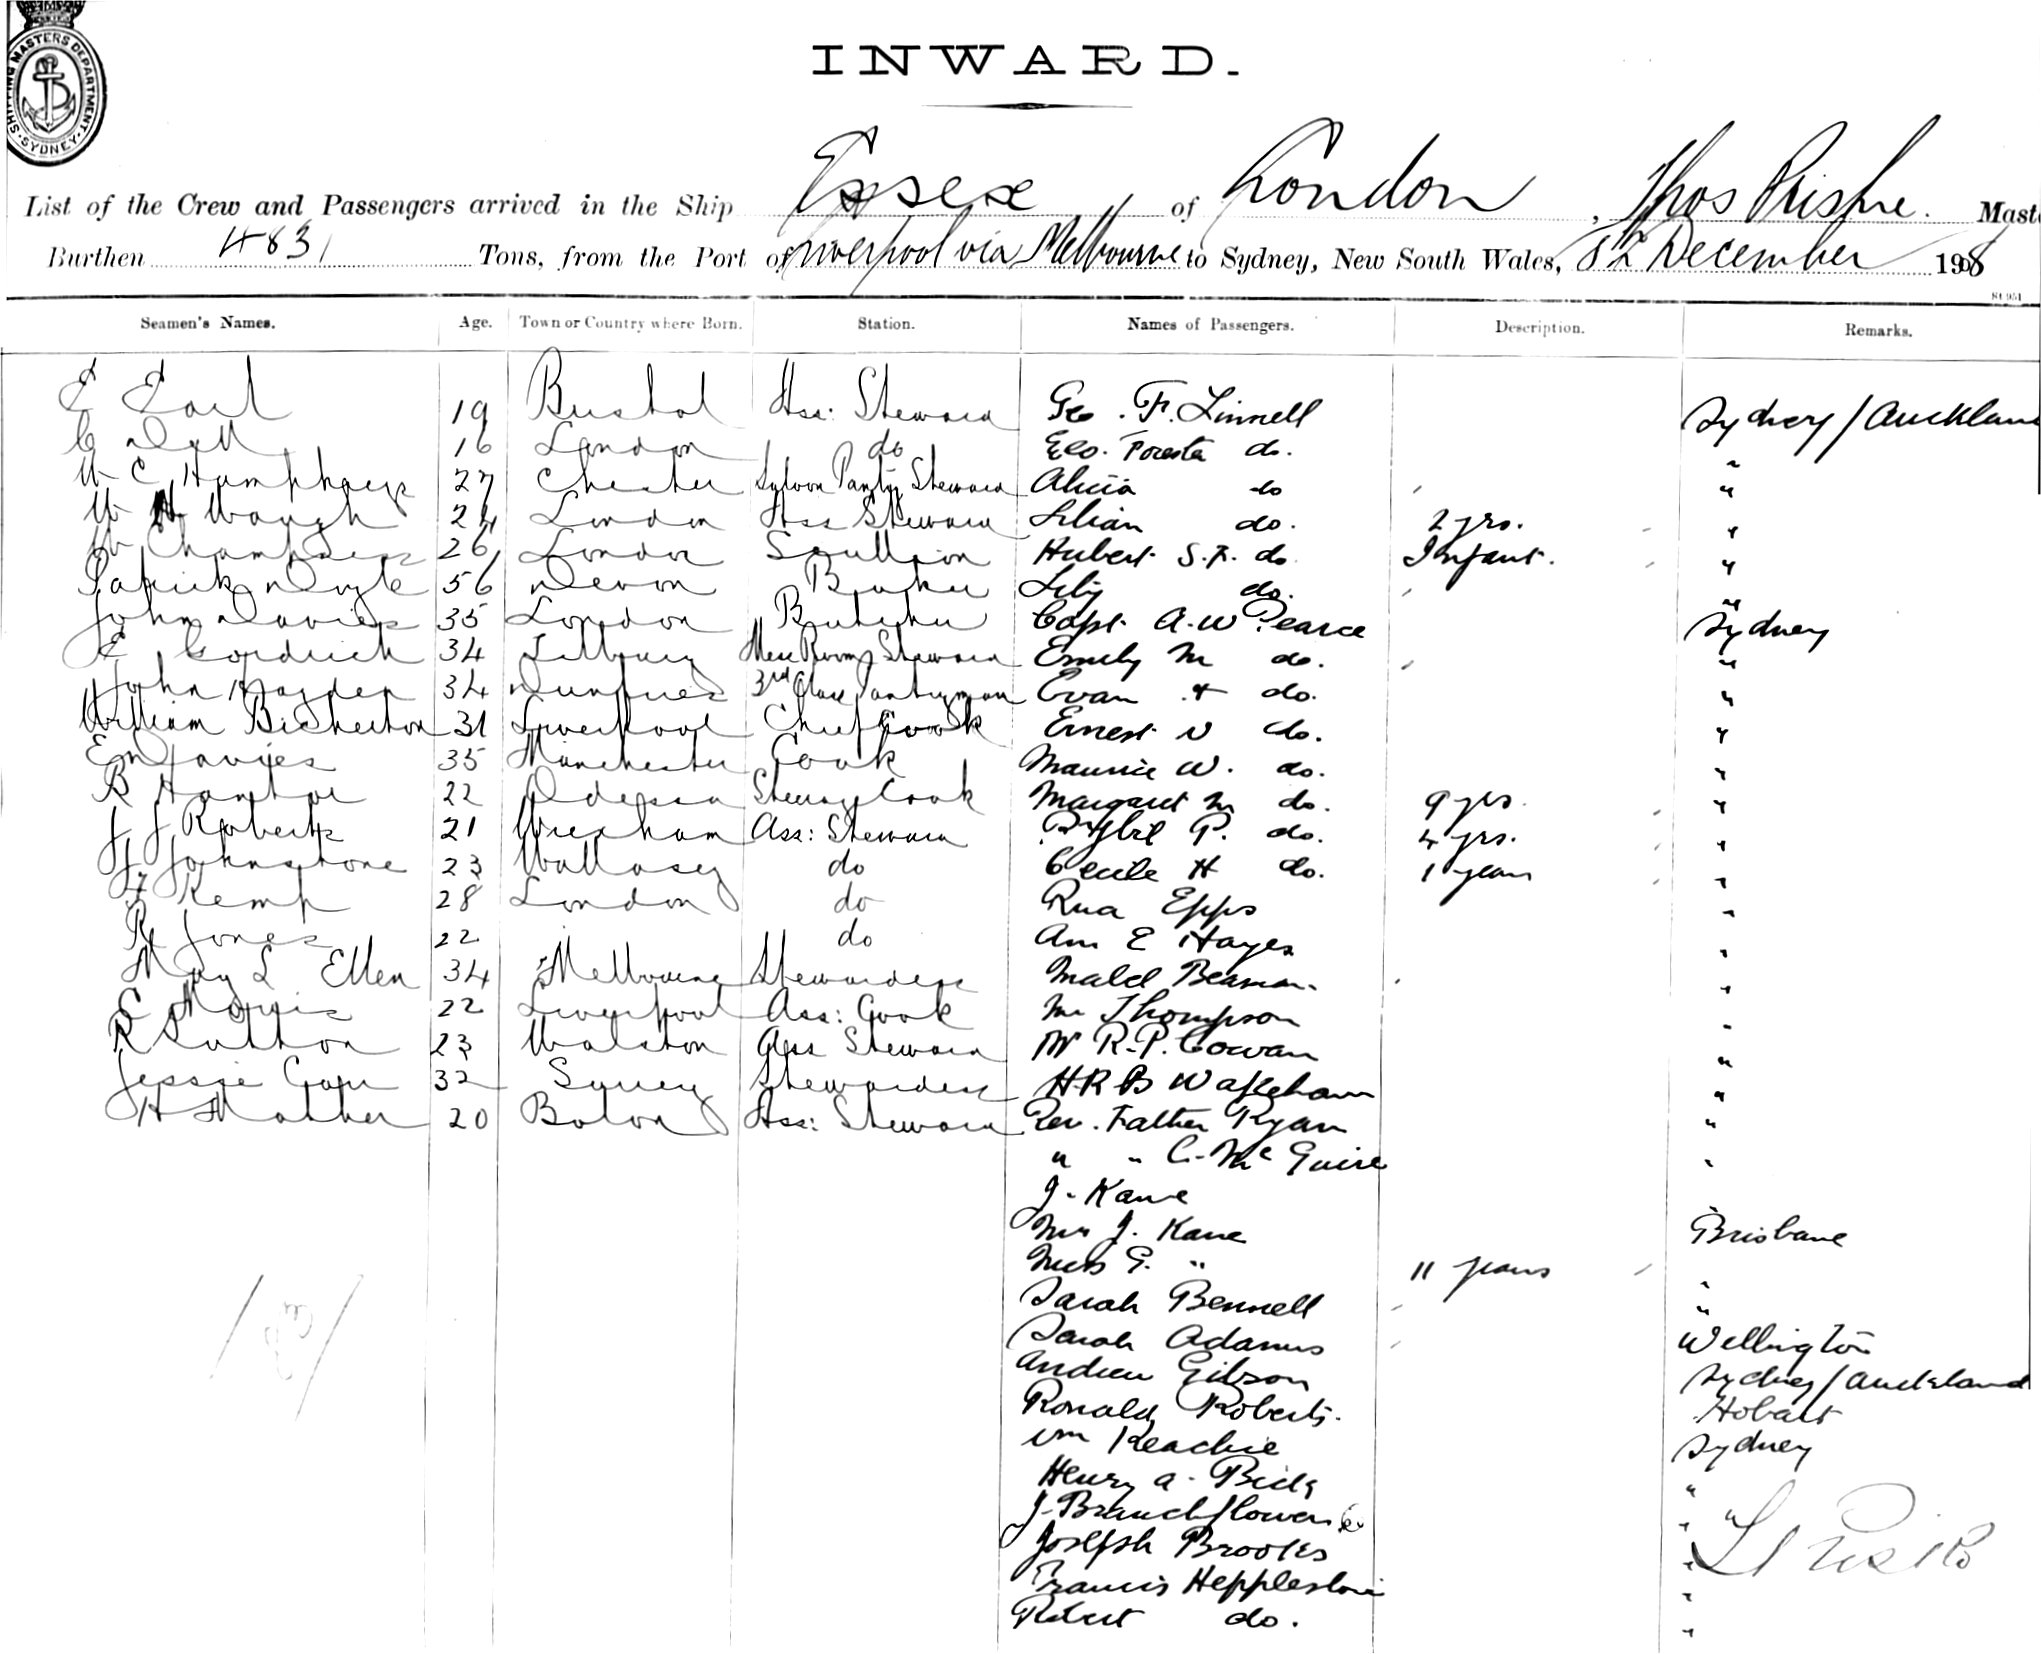 SHIPPING MASTERS DEPARTMENT SYDNEY
INWARD.
List of the Crew and Passengers arrived in the Ship Essex of London, Thos Mast
Burthen 4831 Tons, from the Port of Liverpool via Melbourne to Sydney, New South Wales, December 1908
St 951
Seamen's Names. Age. Town or Country where Born. Station. Names of Passengers. Description. Remarks.
E Earl 19 Bristol Ass: Steward Geo. F. Linnell Sydney/Auckland
C 16 London do do. "
W C Humphreys 27 Chester Steward Alicia do "
W H Waugh 24 London Ass Steward Lilian do. 2 yrs. "
W 26 London Scullion Hubert S.F. do Infant. "
Patrick Doyle 56 Devon Baker Lily do. "
John Davies 35 London Butcher Capt. A.W Pearce Sydney
E Gordrich 34 Tilbury Mess Room Steward Emily M do. "
John Hayden 34 Dumfries 3rd Class Pantryman Evan do. "
William Bickerton 31 Liverpool Chief Cook Ernest V do. "
E Davies 35 Manchester Cook Maurice W. do. "
B 22 Odessa Cook Margaret M do. 9 yrs. "
J J Roberts 21 Wrexham Ass: Steward P. do. 4 yrs. "
J Johnstone 23 Wallasey do Cecile H do. 1 year "
Kemp 28 London do Rua Epps "
R Jones 22 do Ann E Hayes "
May L Ellen 34 Melbourne Stewardess Mabel Beaman. "
C Morris 22 Liverpool Ass: Cook Mr Thompson "
R Sutton 23 Walston Ass Steward Mr R.P. Cowan "
Jessie 32 Surrey Stewardess H R B Wakeham "
H Mather 20 Bolon Ass: Steward Rev. Father Ryan "
" " C. McGuire "
J. Kane
Mrs J. Kane Brisbane
Miss G. " 11 years "
Sarah Bennell "
Sarah Adams Wellington
Andrew Gibson Sydney/Auckland
Ronald Roberts. Hobart
Wm Keachie Sydney
Henry A. "
J. Branchflower "
Joseph Brookes "
Francis Hepplestone "
Robert do. "